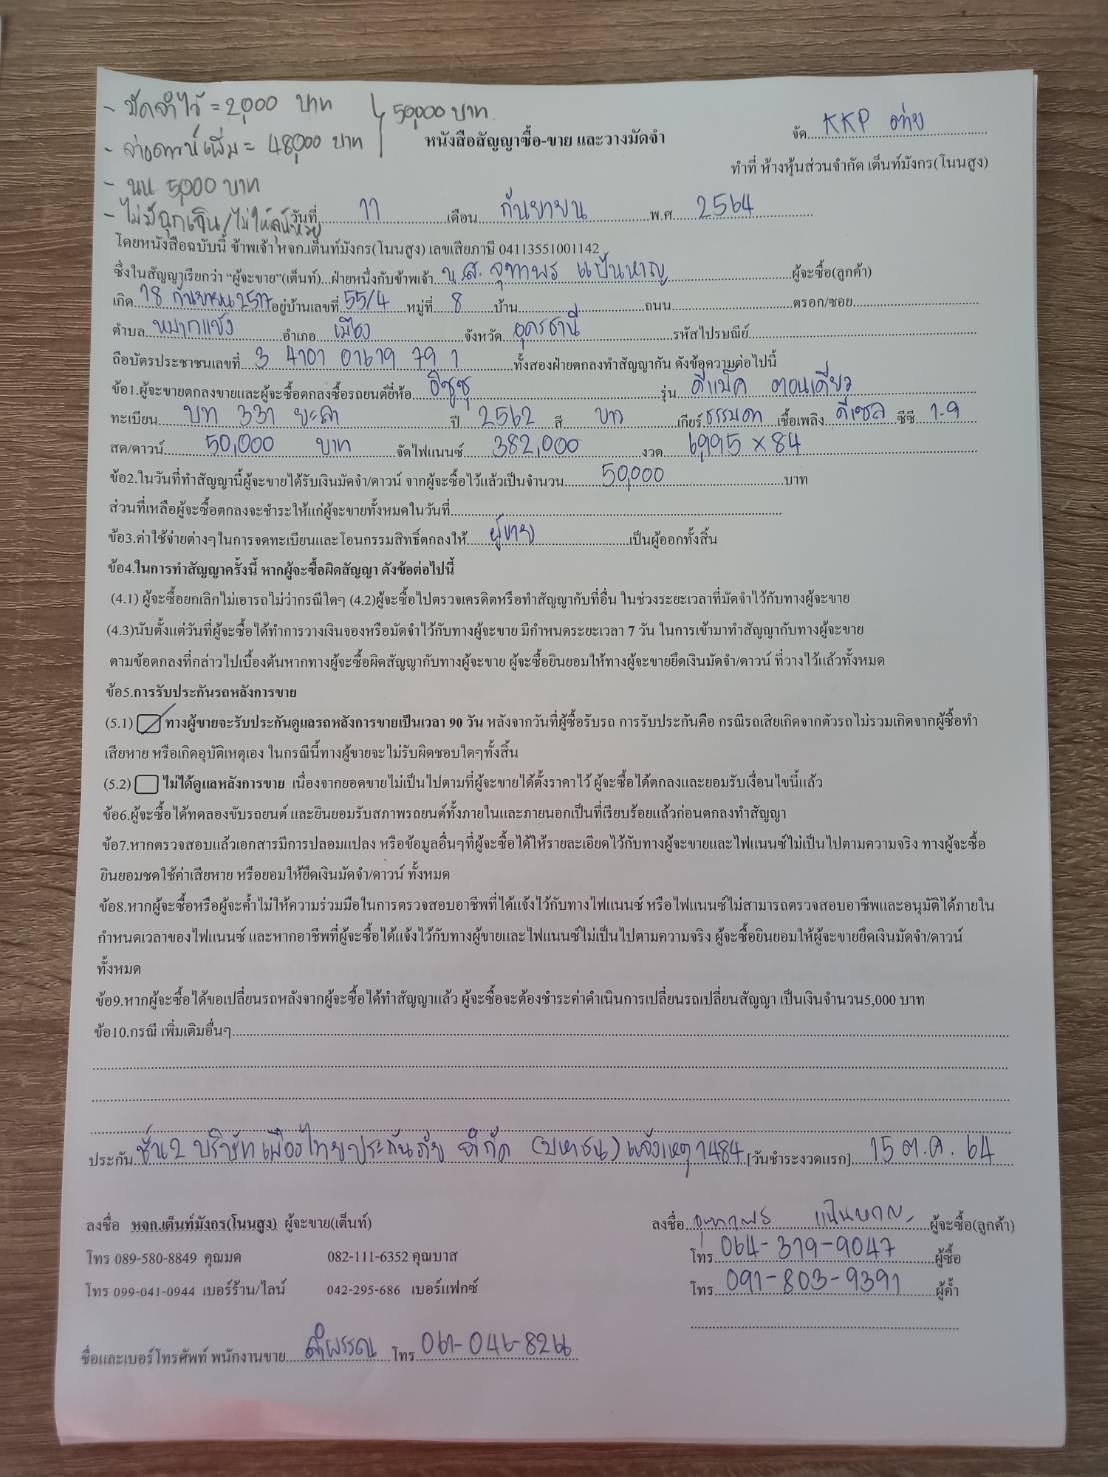 - มัดจำไว้ = 2,000 บาท
- จ่ายดาวน์เพิ่ม = 48,000 บาท
50,000 บาท
- นน 5,000 บาท
- ไม่มีฉุกเฉิน/ไม่ให้
หนังสือสัญญาซื้อ-ขาย และวางมัดจำ
จัด KKP
ทำที่ ห้างหุ้นส่วนจำกัด เต็นท์มังกร(โนนสูง)
วันที่ 11 เดือน กันยายน พ.ศ. 2564
โดยหนังสือฉบับนี้ ข้าพเจ้า หจก.เต็นท์มังกร(โนนสูง) เลขเสียภาษี 04113551001142
ซึ่งในสัญญาเรียกว่า "ผู้จะขาย"(เต็นท์)...ฝ่ายหนึ่งกับข้าพเจ้า น.ส. จุฑาพร แป้นหาญ ผู้จะซื้อ(ลูกค้า)
เกิด 18 กันยายน 2517 อยู่บ้านเลขที่ 55/4 หมู่ที่ 8 บ้าน ถนน ตรอก/ซอย
ตำบล หมากแข้ง อำเภอ เมือง จังหวัด อุดรธานี รหัสไปรษณีย์
ถือบัตรประชาชนเลขที่ 3 4101 01619 79 1 ทั้งสองฝ่ายตกลงทำสัญญากัน ดังข้อความต่อไปนี้
ข้อ1.ผู้จะขายตกลงขายและผู้จะซื้อตกลงซื้อรถยนต์ยี่ห้อ อีซูซุ รุ่น ดีแม็ค ตอนเดียว
ทะเบียน บท 331 ยะลา ปี 2562 สี ขาว เกียร์ ธรรมดา เชื้อเพลิง ดีเซล ซีซี 1.9
สด/ดาวน์ 50,000 บาท จัดไฟแนนซ์ 382,000 งวด 6,995 x 84
ข้อ2.ในวันที่ทำสัญญานี้ผู้จะขายได้รับเงินมัดจำ/ดาวน์ จากผู้จะซื้อไว้แล้วเป็นจำนวน 50,000 บาท
ส่วนที่เหลือผู้จะซื้อตกลงจะชำระให้แก่ผู้จะขายทั้งหมดในวันที่
ข้อ3.ค่าใช้จ่ายต่างๆในการจดทะเบียนและโอนกรรมสิทธิ์ตกลงให้ ผู้ขาย เป็นผู้ออกทั้งสิ้น
ข้อ4.ในการทำสัญญาครั้งนี้ หากผู้จะซื้อผิดสัญญา ดังข้อต่อไปนี้
(4.1) ผู้จะซื้อยกเลิกไม่เอารถไม่ว่ากรณีใดๆ (4.2)ผู้จะซื้อไปตรวจเครดิตหรือทำสัญญากับที่อื่น ในช่วงระยะเวลาที่มัดจำไว้กับทางผู้จะขาย
(4.3)นับตั้งแต่วันที่ผู้จะซื้อได้ทำการวางเงินจองหรือมัดจำไว้กับทางผู้จะขาย มีกำหนดระยะเวลา 7 วัน ในการเข้ามาทำสัญญากับทางผู้จะขาย
ตามข้อตกลงที่กล่าวไปเบื้องต้นหากทางผู้จะซื้อผิดสัญญากับทางผู้จะขาย ผู้จะซื้อยินยอมให้ทางผู้จะขายยึดเงินมัดจำ/ดาวน์ ที่วางไว้แล้วทั้งหมด
ข้อ5.การรับประกันรถหลังการขาย
(5.1) ทางผู้ขายจะรับประกันดูแลรถหลังการขายเป็นเวลา 90 วัน หลังจากวันที่ผู้ซื้อรับรถ การรับประกันคือ กรณีรถเสียเกิดจากตัวรถไม่รวมเกิดจากผู้ซื้อทำ
เสียหาย หรือเกิดอุบัติเหตุเอง ในกรณีนี้ทางผู้ขายจะไม่รับผิดชอบใดๆทั้งสิ้น
(5.2) ไม่ได้ดูแลหลังการขาย เนื่องจากยอดขายไม่เป็นไปตามที่ผู้จะขายได้ตั้งราคาไว้ ผู้จะซื้อได้ตกลงและยอมรับเงื่อนไขนี้แล้ว
ข้อ6.ผู้จะซื้อได้ทดลองขับรถยนต์ และยินยอมรับสภาพรถยนต์ทั้งภายในและภายนอกเป็นที่เรียบร้อยแล้วก่อนตกลงทำสัญญา
ข้อ7.หากตรวจสอบแล้วเอกสารมีการปลอมแปลง หรือข้อมูลอื่นๆที่ผู้จะซื้อได้ให้รายละเอียดไว้กับทางผู้จะขายและไฟแนนซ์ไม่เป็นไปตามความจริง ทางผู้จะซื้อ
ยินยอมชดใช้ค่าเสียหาย หรือยอมให้ยึดเงินมัดจำ/ดาวน์ ทั้งหมด
ข้อ8.หากผู้จะซื้อหรือผู้จะค้ำไม่ให้ความร่วมมือในการตรวจสอบอาชีพที่ได้แจ้งไว้กับทางไฟแนนซ์ หรือไฟแนนซ์ไม่สามารถตรวจสอบอาชีพและอนุมัติได้ภายใน
กำหนดเวลาของไฟแนนซ์ และหากอาชีพที่ผู้จะซื้อได้แจ้งไว้กับทางผู้ขายและไฟแนนซ์ไม่เป็นไปตามความจริง ผู้จะซื้อยินยอมให้ผู้จะขายยึดเงินมัดจำ/ดาวน์
ทั้งหมด
ข้อ9.หากผู้จะซื้อได้ขอเปลี่ยนรถหลังจากผู้จะซื้อได้ทำสัญญาแล้ว ผู้จะซื้อจะต้องชำระค่าดำเนินการเปลี่ยนรถเปลี่ยนสัญญา เป็นเงินจำนวน5,000 บาท
ข้อ10.กรณี เพิ่มเติมอื่นๆ
ประกัน ชั้น2 บริษัท เมืองไทยประกันภัย จำกัด (มหาชน) แจ้งเหตุ 1484 [วันชำระงวดแรก] 15 ต.ค. 64
ลงชื่อ หจก.เต็นท์มังกร(โนนสูง) ผู้จะขาย(เต็นท์)
ลงชื่อ จุฑาพร แป้นหาญ ผู้จะซื้อ(ลูกค้า)
โทร 089-580-8849 คุณมด 082-111-6352 คุณบาส
โทร 064-319-9047 ผู้ซื้อ
โทร 099-041-0944 เบอร์ร้าน/ไลน์ 042-295-686 เบอร์แฟกซ์
โทร 091-803-9391 ผู้ค้ำ
ชื่อและเบอร์โทรศัพท์ พนักงานขาย อำพรรณ โทร 061-046-8266